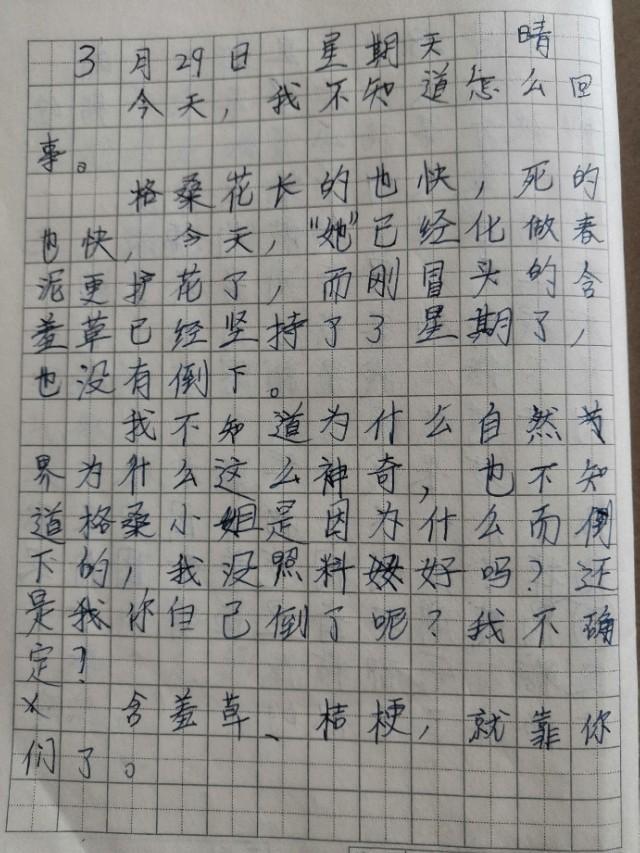 3月29日 星期天 晴
今天，我不知道怎么回
事。
格桑花长的也快，死的
也快，今天，“她”已经化做春
泥更护花了，而刚冒头的含
羞草已经坚持了3星期了，
也没有倒下。
我不知道为什么自然
界为什么这么神奇，也不知
道格桑小姐是因为什么而倒
下的，我没照料好吗？还
是我你自己倒了呢？我不确
定？
含羞草、桔梗，就靠你
们了。